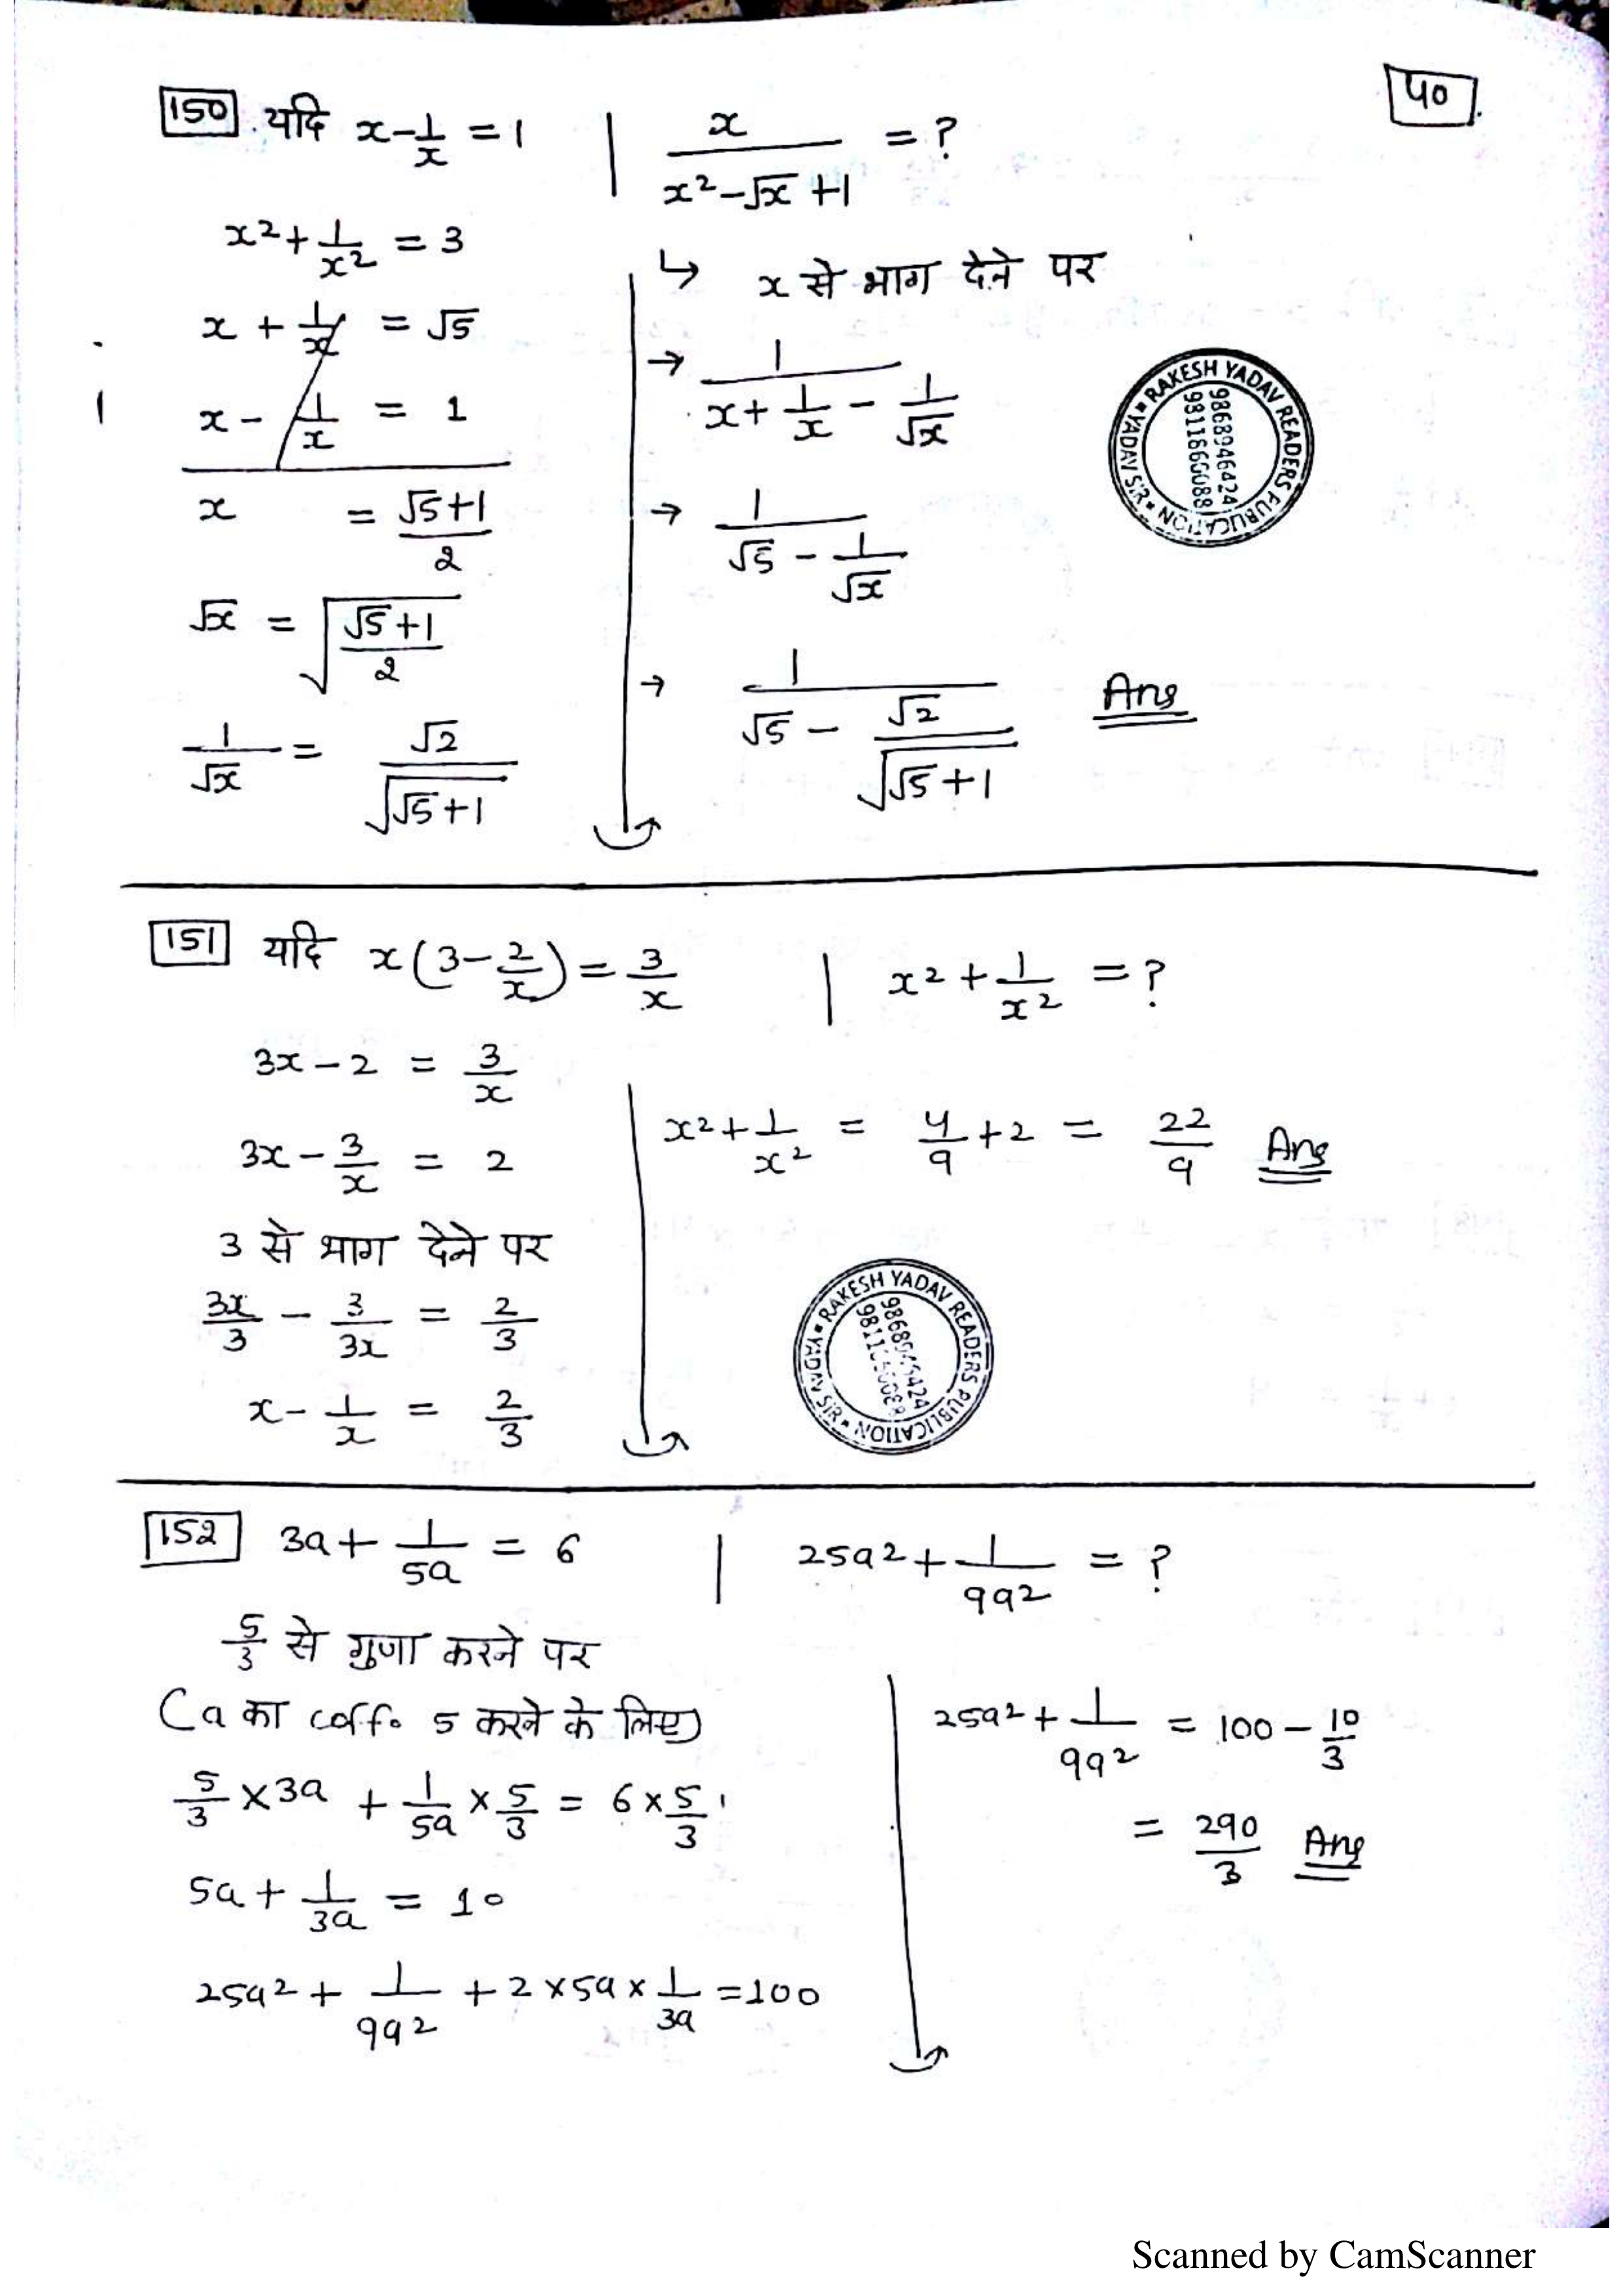 40
150 यदि x - 1/x = 1 | x/(x² - √x + 1) = ?
x² + 1/x² = 3
x + 1/x = √5
x - 1/x = 1
x = (√5+1)/2
√x = √((√5+1)/2)
1/√x = √2/√(√5+1)
↳ x से भाग देने पर
→ 1/(x + 1/x - 1/√x)
→ 1/(√5 - 1/√x)
→ 1/(√5 - √2/√(√5+1)) Ans
RAKESH YADAV READERS PUBLICATION
YADAV SIR
9868946424
9811860088
151 यदि x(3 - 2/x) = 3/x | x² + 1/x² = ?
3x - 2 = 3/x
3x - 3/x = 2
3 से भाग देने पर
3x/3 - 3/3x = 2/3
x - 1/x = 2/3
x² + 1/x² = 4/9 + 2 = 22/9 Ans
RAKESH YADAV READERS PUBLICATION
YADAV SIR
152 3a + 1/5a = 6 | 25a² + 1/9a² = ?
5/3 से गुणा करने पर
(a का coff. 5 करने के लिए)
5/3 × 3a + 1/5a × 5/3 = 6 × 5/3
5a + 1/3a = 10
25a² + 1/9a² + 2 × 5a × 1/3a = 100
25a² + 1/9a² = 100 - 10/3
= 290/3 Ans
Scanned by CamScanner